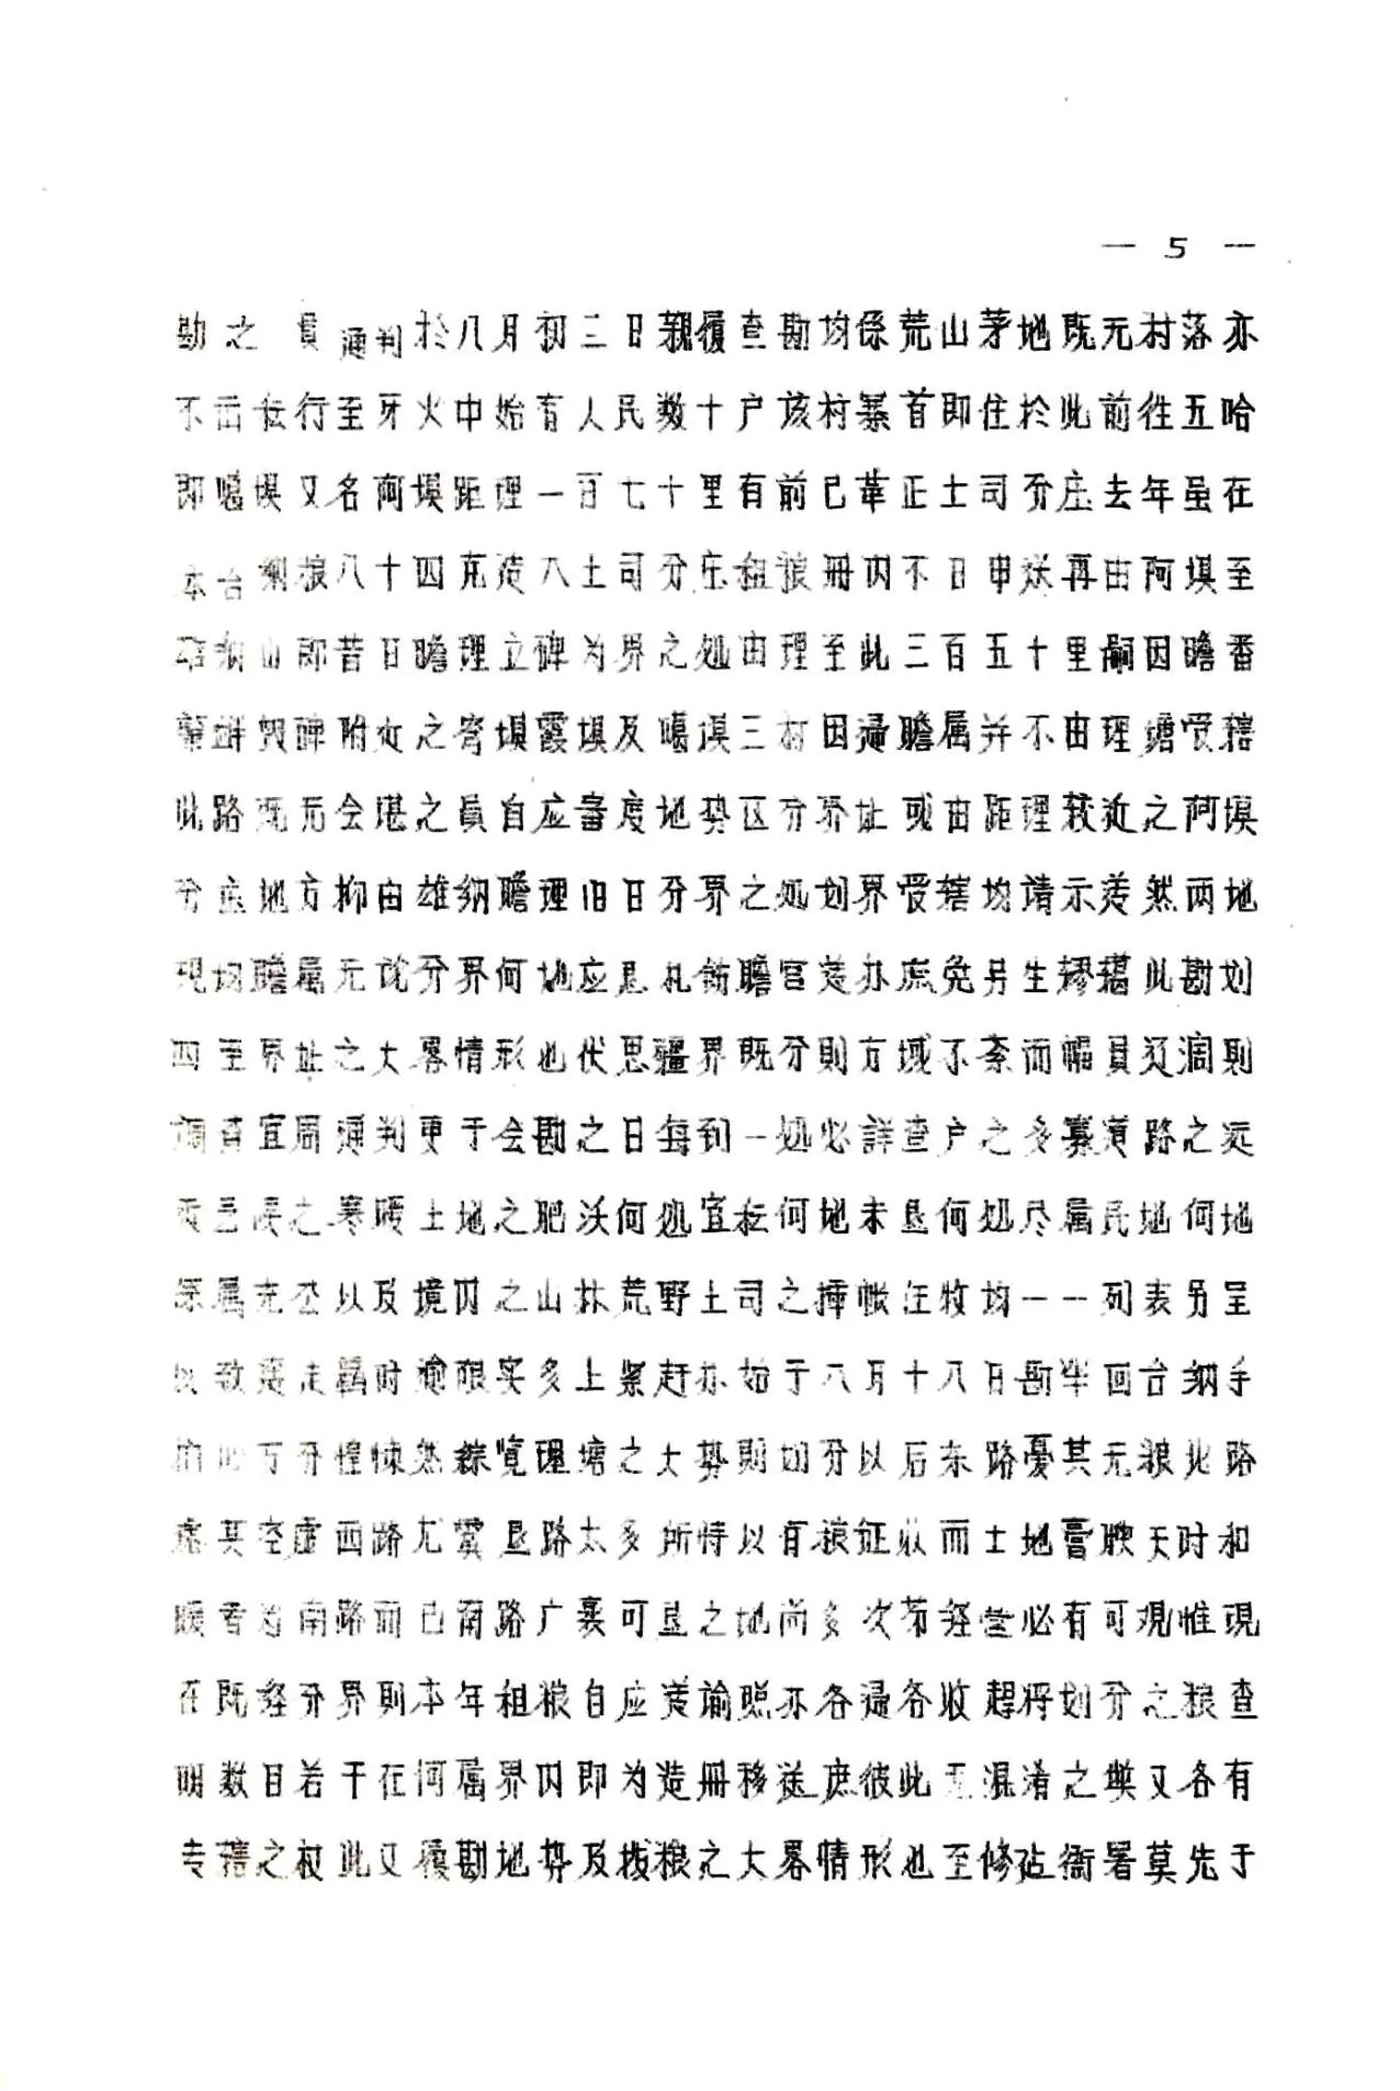 — 5 —
勘之員通判於八月初三日親覆查勘均係荒山茅地既无村落亦
不宜坛行至牙火中始有人民数十户该村寨首即住於此前往五哈
即噶埧又名阿埧距理一百七十里有前已革正土司分庄去年虽在
本台 粮八十四克造入土司分庄租粮册内不日申送再由阿埧至
雄納山即昔日瞻理立碑为界之处由理至此三百五十里嗣因瞻番
毁碑附近之 埧霞埧及噶埧三村因逼瞻属并不由理塘受辖
此路既无会堪之員自应審度地势区分界址或由距理较近之阿埧
分庄地方抑由雄納瞻理旧日分界之处划界受辖均请示遵然两地
现均瞻属无论分界何地应恳札飭瞻官遵办庶免另生轇轕此勘划
四至界址之大畧情形也伏思疆界既分則方域不紊而幅員辽濶則
調查宜周通判更于会勘之日每到一处必詳查户之多寡道路之远
近气候之寒暖土地之肥沃何处宜坛何地未垦何处尽属民地何地
係属充公以及境内之山林荒野土司之撑帐庄牧均一一列表另呈
以致荏苒时逾限实多上紧赶办始于八月十八日勘毕回台納手
扪心万分惶悚然綜览理塘之大势則划分以后东路憂其无粮北路
虑其空虚西路尤 垦路太多所恃以有粮征收而土地膏腴天时和
暖者为南路而已南路广袤可垦之地尚多次第经营必有可观惟现
在既经分界則本年租粮自应遵谕照亦各逼各收趕将划分之粮查
明数目若干在何属界内即为造册移送庶彼此无混淆之弊又各有
专辖之权此又覆勘地势及拨粮之大畧情形也至修砧衙署莫先于